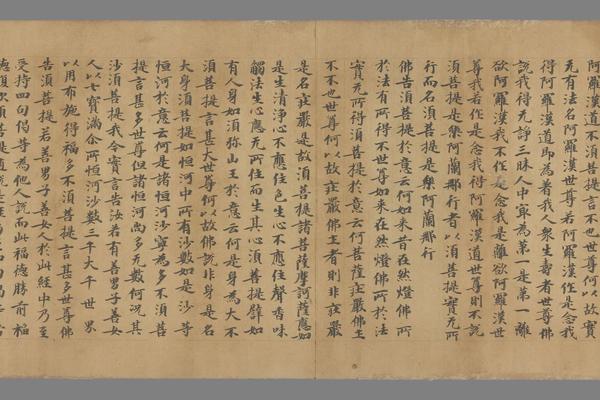 阿羅漢道不須菩提言不也世尊何以故實
无有法名阿羅漢世尊若阿羅漢作是念我
得阿羅漢道即為著我人衆生壽者世尊佛
說我得无諍三昧人中㝡為第一是第一離
欲阿羅漢我不作是念我是離欲阿羅漢世
尊我若作是念我得阿羅漢道世尊則不說
須菩提是樂阿蘭那行者以須菩提實无所
行而名須菩提是樂阿蘭那行
佛告須菩提於意云何如來昔在然燈佛所
於法有所得不世尊如來在然燈佛所於法
實无所得須菩提於意云何菩薩莊嚴佛土
不不也世尊何以故莊嚴佛土者則非莊嚴
是名莊嚴是故須菩提諸菩薩摩訶薩應如
是生清淨心不應住色生心不應住聲香味
觸法生心應无所住而生其心須菩提譬如
有人身如須弥山王於意云何是身為大不
須菩提言甚大世尊何以故佛說非身是名
大身須菩提如恒河中所有沙數如是沙等
恒河於意云何是諸恒河沙寧為多不須菩
提言甚多世尊但諸恒河尚多无數何況其
沙須菩提我今實言告汝若有善男子善女
人以七寶滿尒所恒河沙數三千大千世界
以用布施得福多不須菩提言甚多世尊佛
告須菩提若善男子善女人於此經中乃至
受持四句偈等為他人說而此福德勝前福
德復次須菩提